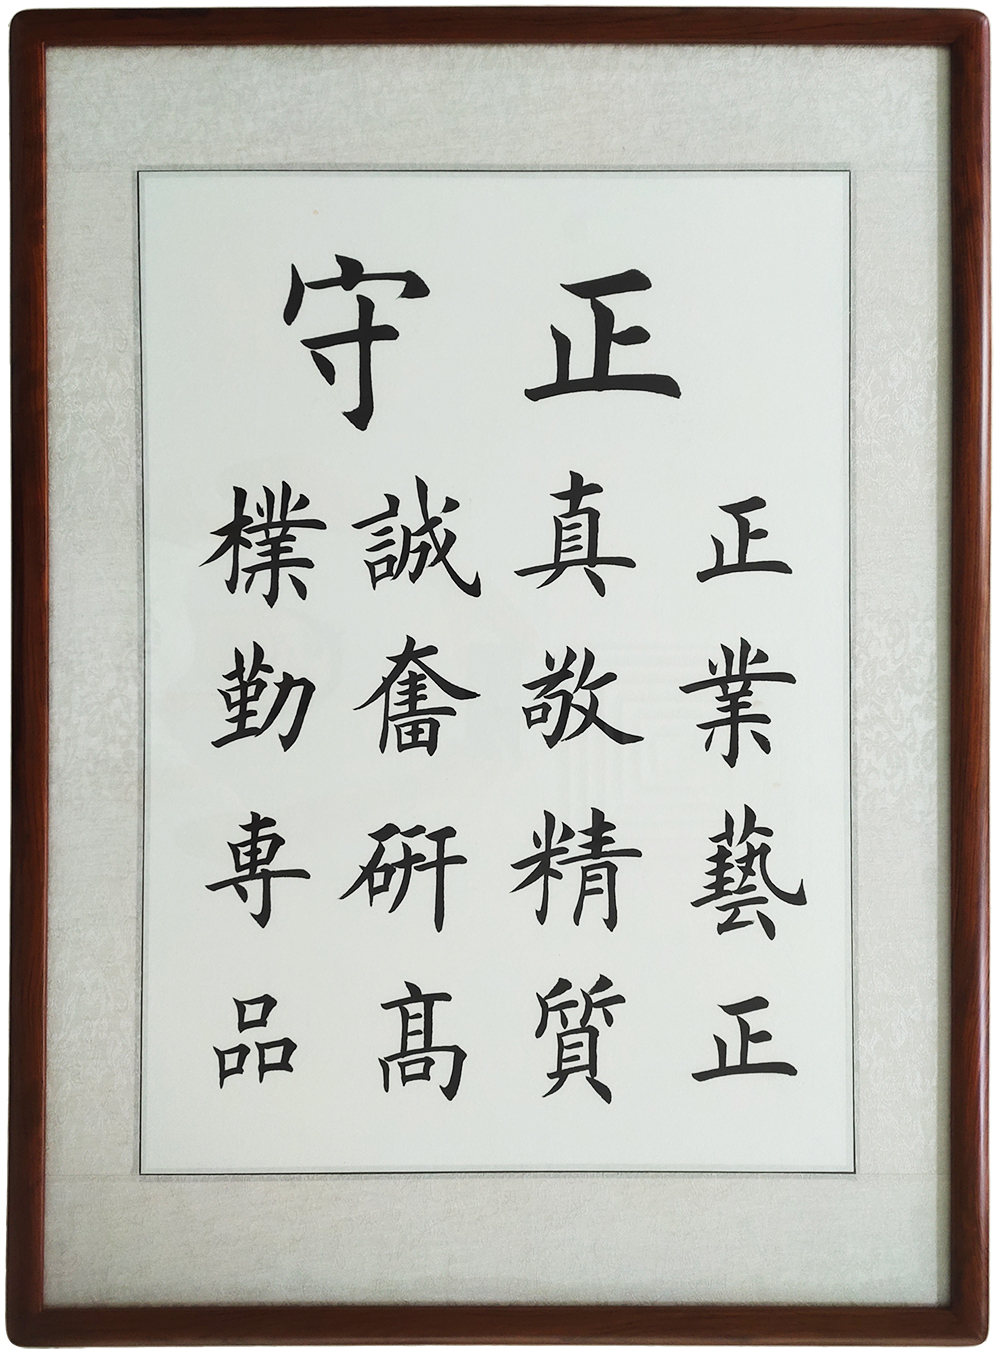 正守
正真誠樸
業敬奮勤
藝精硏専
正質髙品